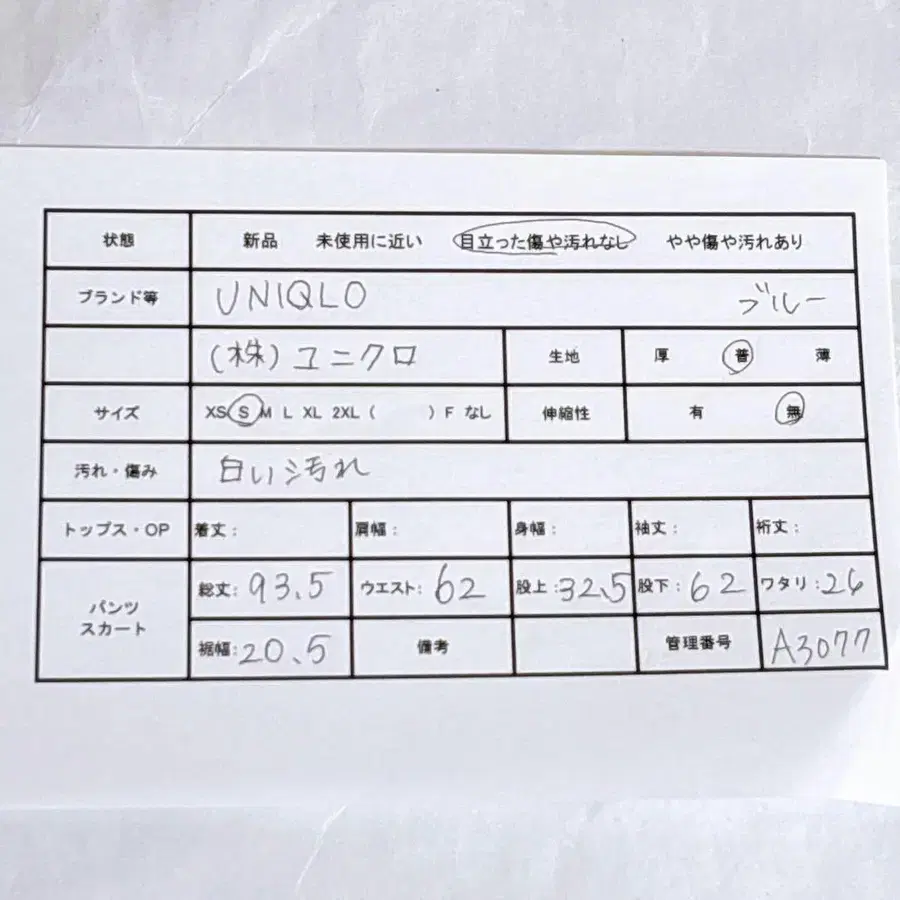 状態 新品 未使用に近い 目立った傷や汚れなし やや傷や汚れあり
ブランド等 UNIQLO ブルー
(株)ユニクロ 生地 厚 普 薄
サイズ XS S M L XL 2XL ( ) F なし 伸縮性 有 無
汚れ・傷み 白い汚れ
トップス・OP 着丈: 肩幅: 身幅: 袖丈: 裄丈:
パンツ スカート 総丈: 93.5 ウエスト: 62 股上: 32.5 股下: 62 ワタリ: 26
裾幅: 20.5 備考 管理番号 A3077